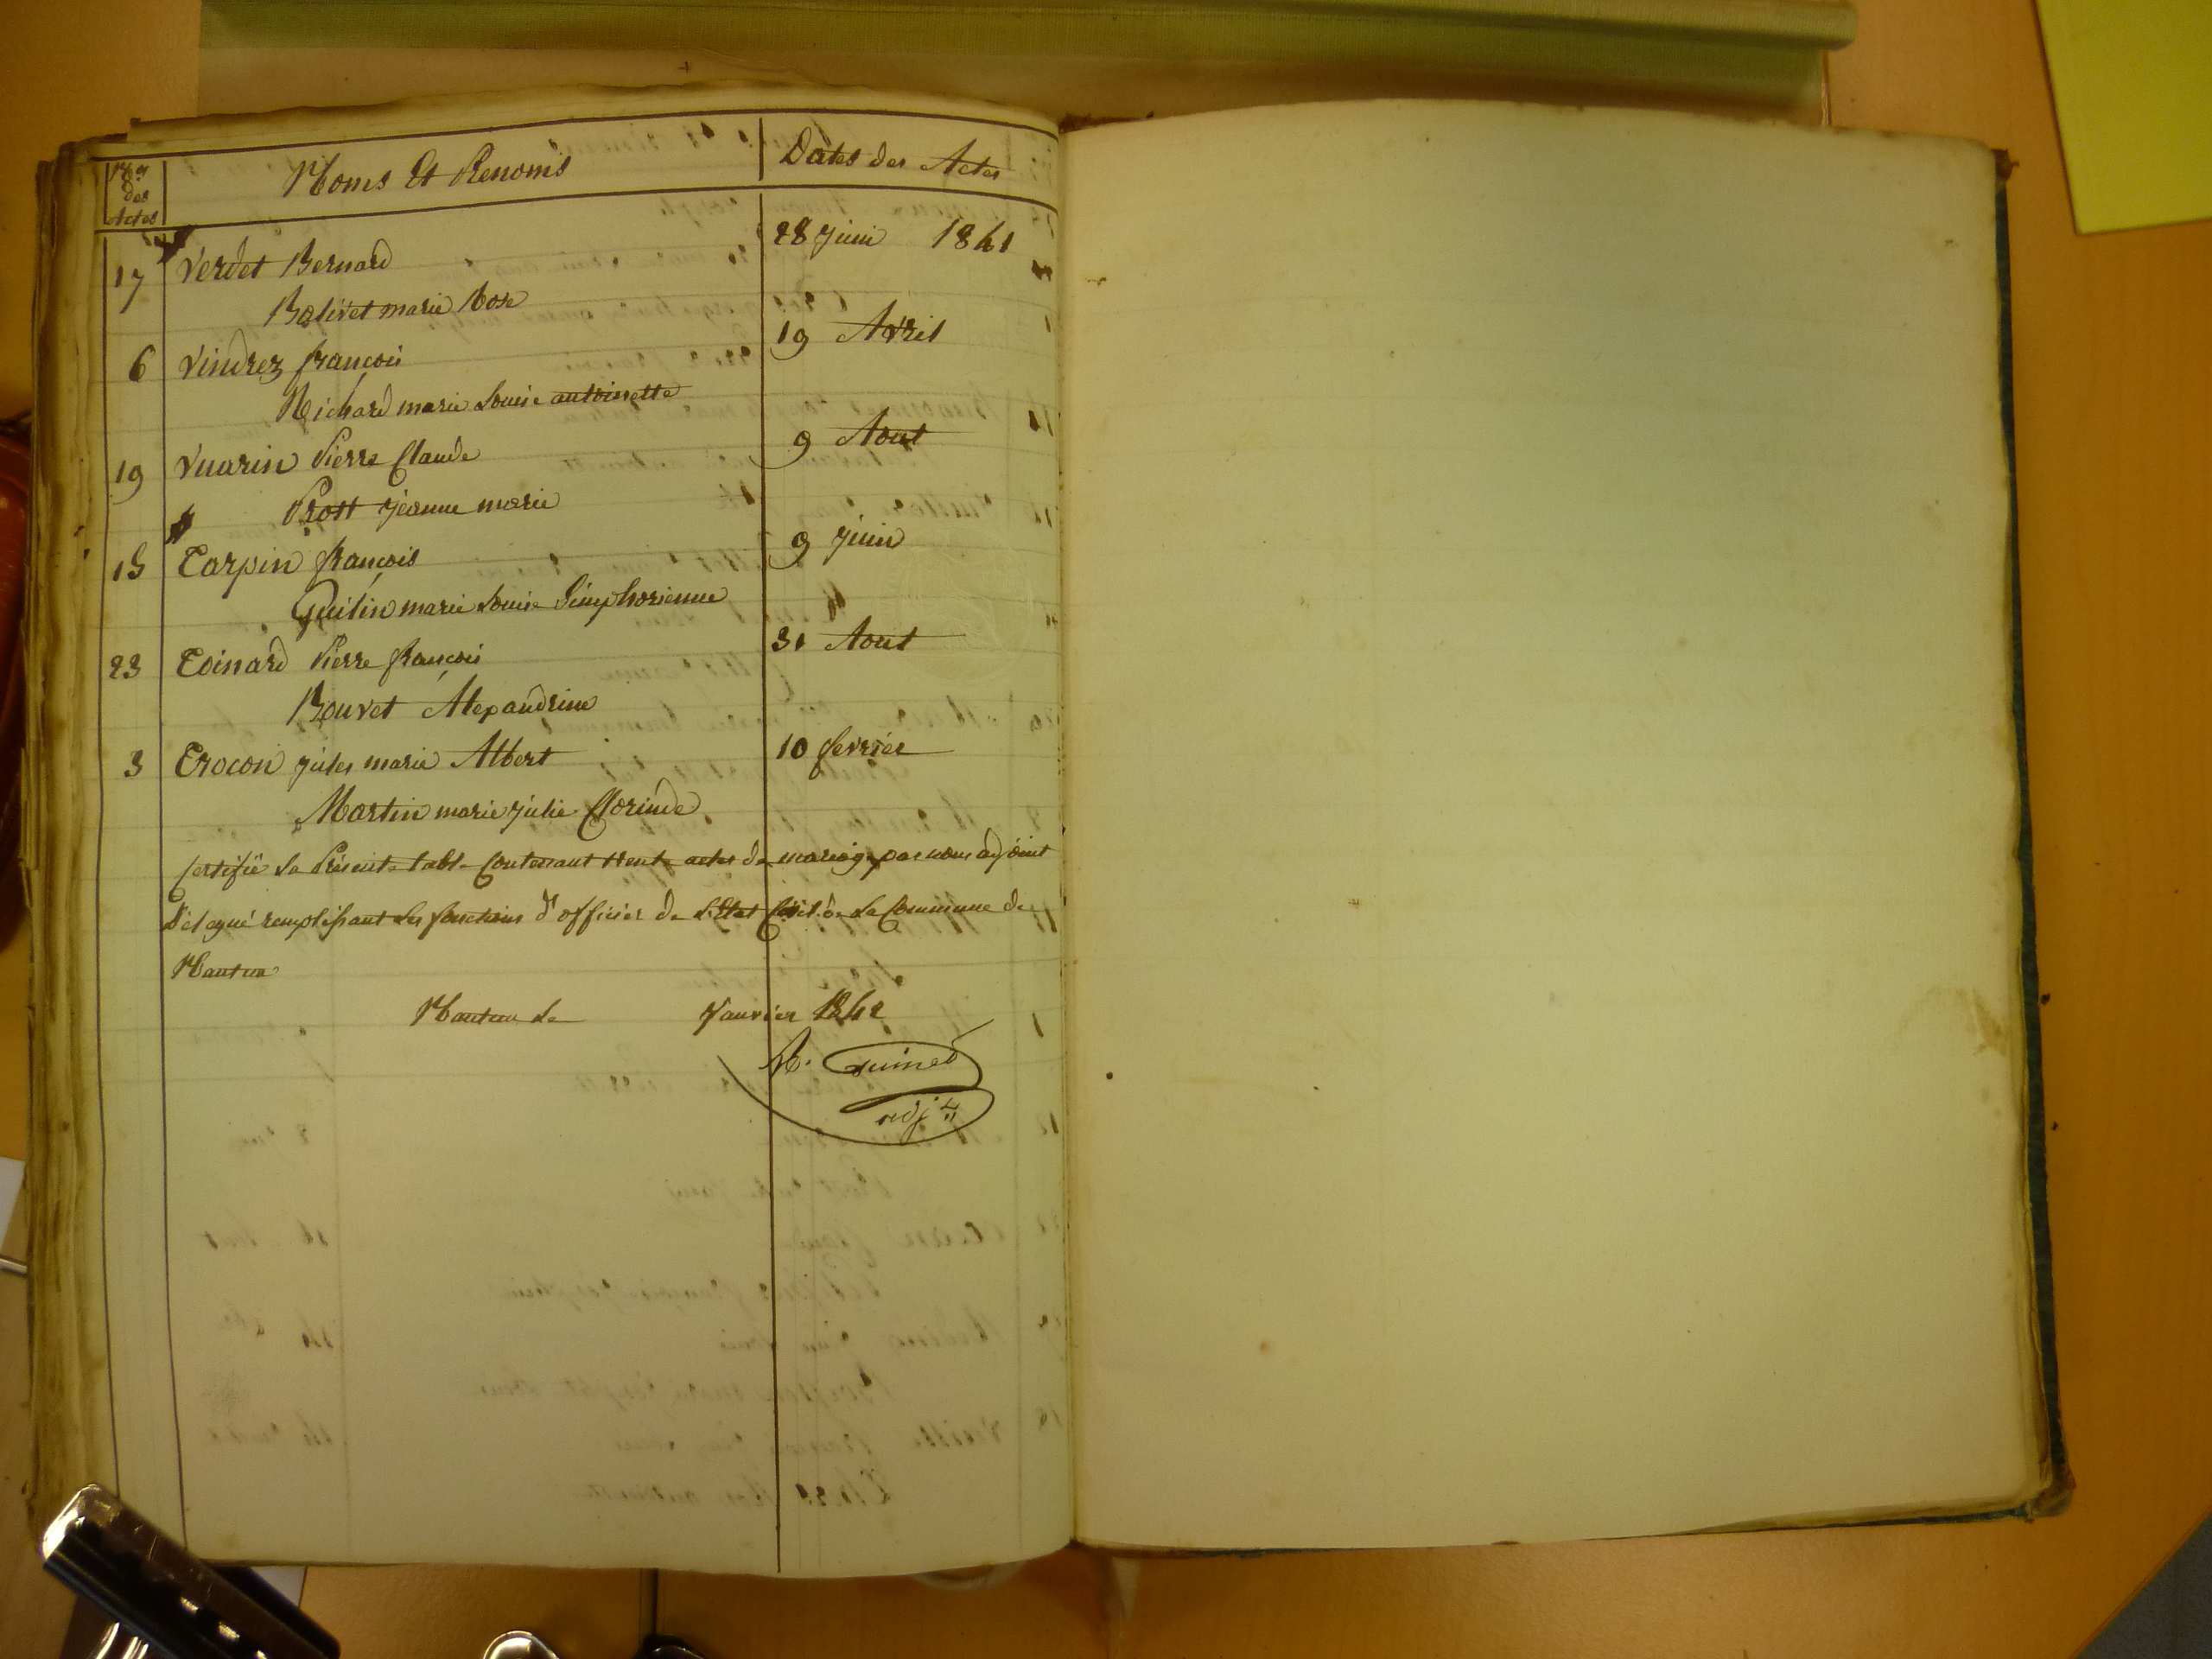 Nos des Actes Noms Et Prenoms Dates des Actes
17 Verdet Bernard 28 juin 1841
Bolivet marie Rose
6 Vindrez françois 19 Avril
Richard marie Louise antoinette
19 Vuarin Pierre Claude 9 Aout
Prost jeanne marie
15 Tarpin françois 9 juin
marie Louise Simphorienne
23 Toinard Pierre françois 31 Aout
Bouvet Alexandrine
3 Trocon jules marie Albert 10 fevrier
Martin marie julie Clorinde
Certifié la Présente table Contenant trente actes de mariage par nous adjoint
Délegué remplissant les fonctions d'officier de L'Etat Civil de La Commune de
Nantua
Nantua le Janvier 1842
adjt